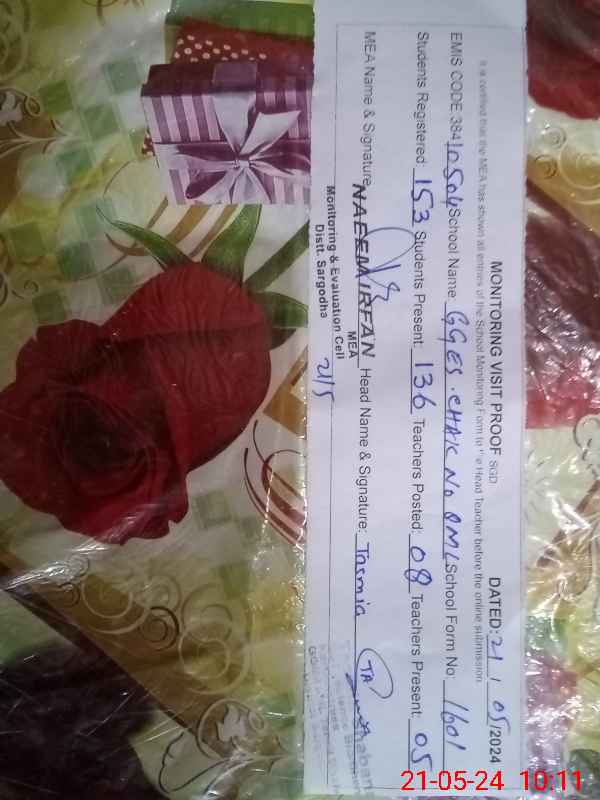 MONITORING VISIT PROOF SGD DATED: 21 / 05/2024
It is certified that the MEA has shown all entries of the School Monitoring Form to the Head Teacher before the online submission.
EMIS CODE 38410504 School Name GGES. CHAK No 8ML School Form No. 1601
Students Registered: 153 Students Present: 136 Teachers Posted: 08 Teachers Present: 05
MEA Name & Signature NAEEM IRFAN Head Name & Signature: Tasmia
MEA
Monitoring & Evaluation Cell
Distt. Sargodha
21/5
21-05-24 10:11